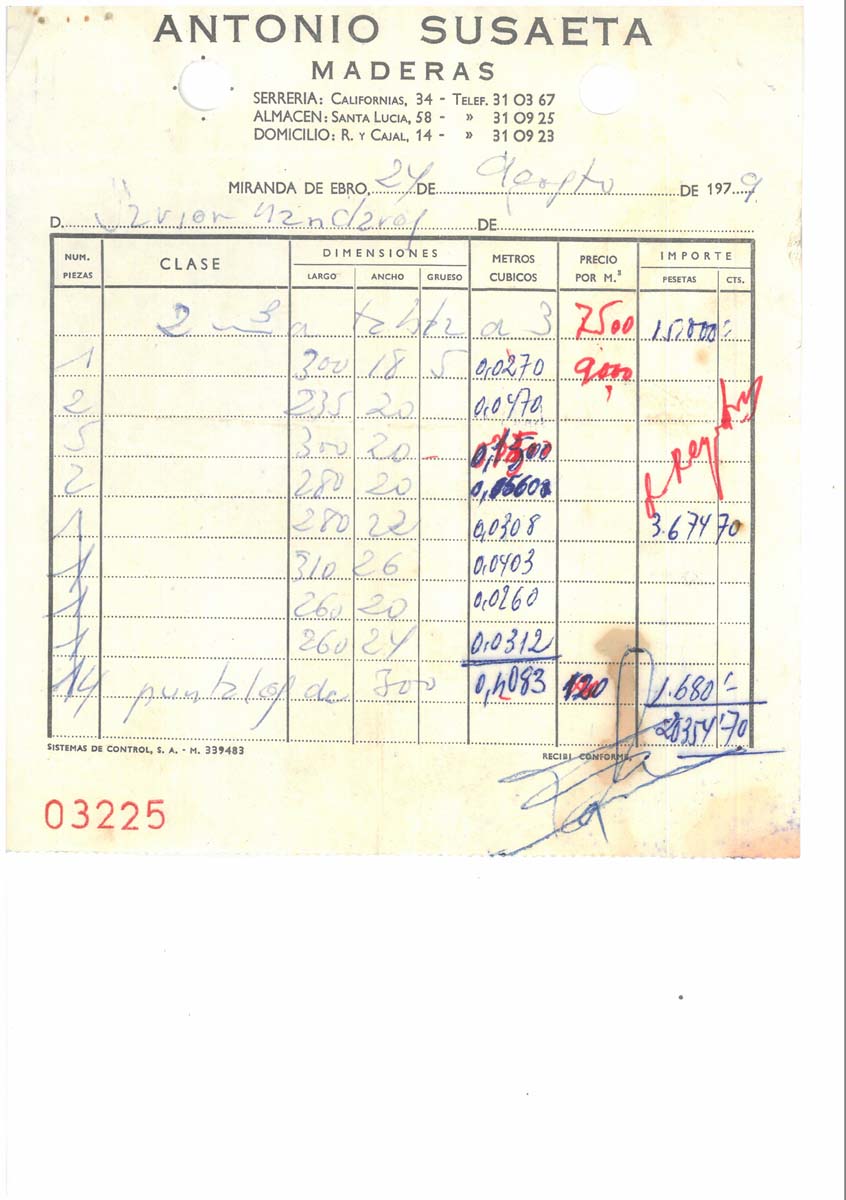 ANTONIO SUSAETA
MADERAS
SERRERIA: CALIFORNIAS, 34 - TELEF. 31 03 67
ALMACEN: SANTA LUCIA, 58 - » 31 09 25
DOMICILIO: R. Y CAJAL, 14 - » 31 09 23
MIRANDA DE EBRO, 24 DE Agosto DE 1979
D. DE
NUM. PIEZAS CLASE DIMENSIONES LARGO ANCHO GRUESO METROS CUBICOS PRECIO POR M.³ IMPORTE PESETAS CTS.
2 m3 a 3 7500 15.000'-
1 300 18 5 0,0270 9000
2 235 20 0,0470
5 300 20 0,1500
2 280 20 0,0560
1 280 22 0,0308 3.674 70
1 310 26 0,0403
1 260 20 0,0260
1 260 24 0,0312
14 puntales de 300 0,4083 120 1.680'-
20354'70
SISTEMAS DE CONTROL, S. A. - M. 339483
RECIBI CONFORME,
03225